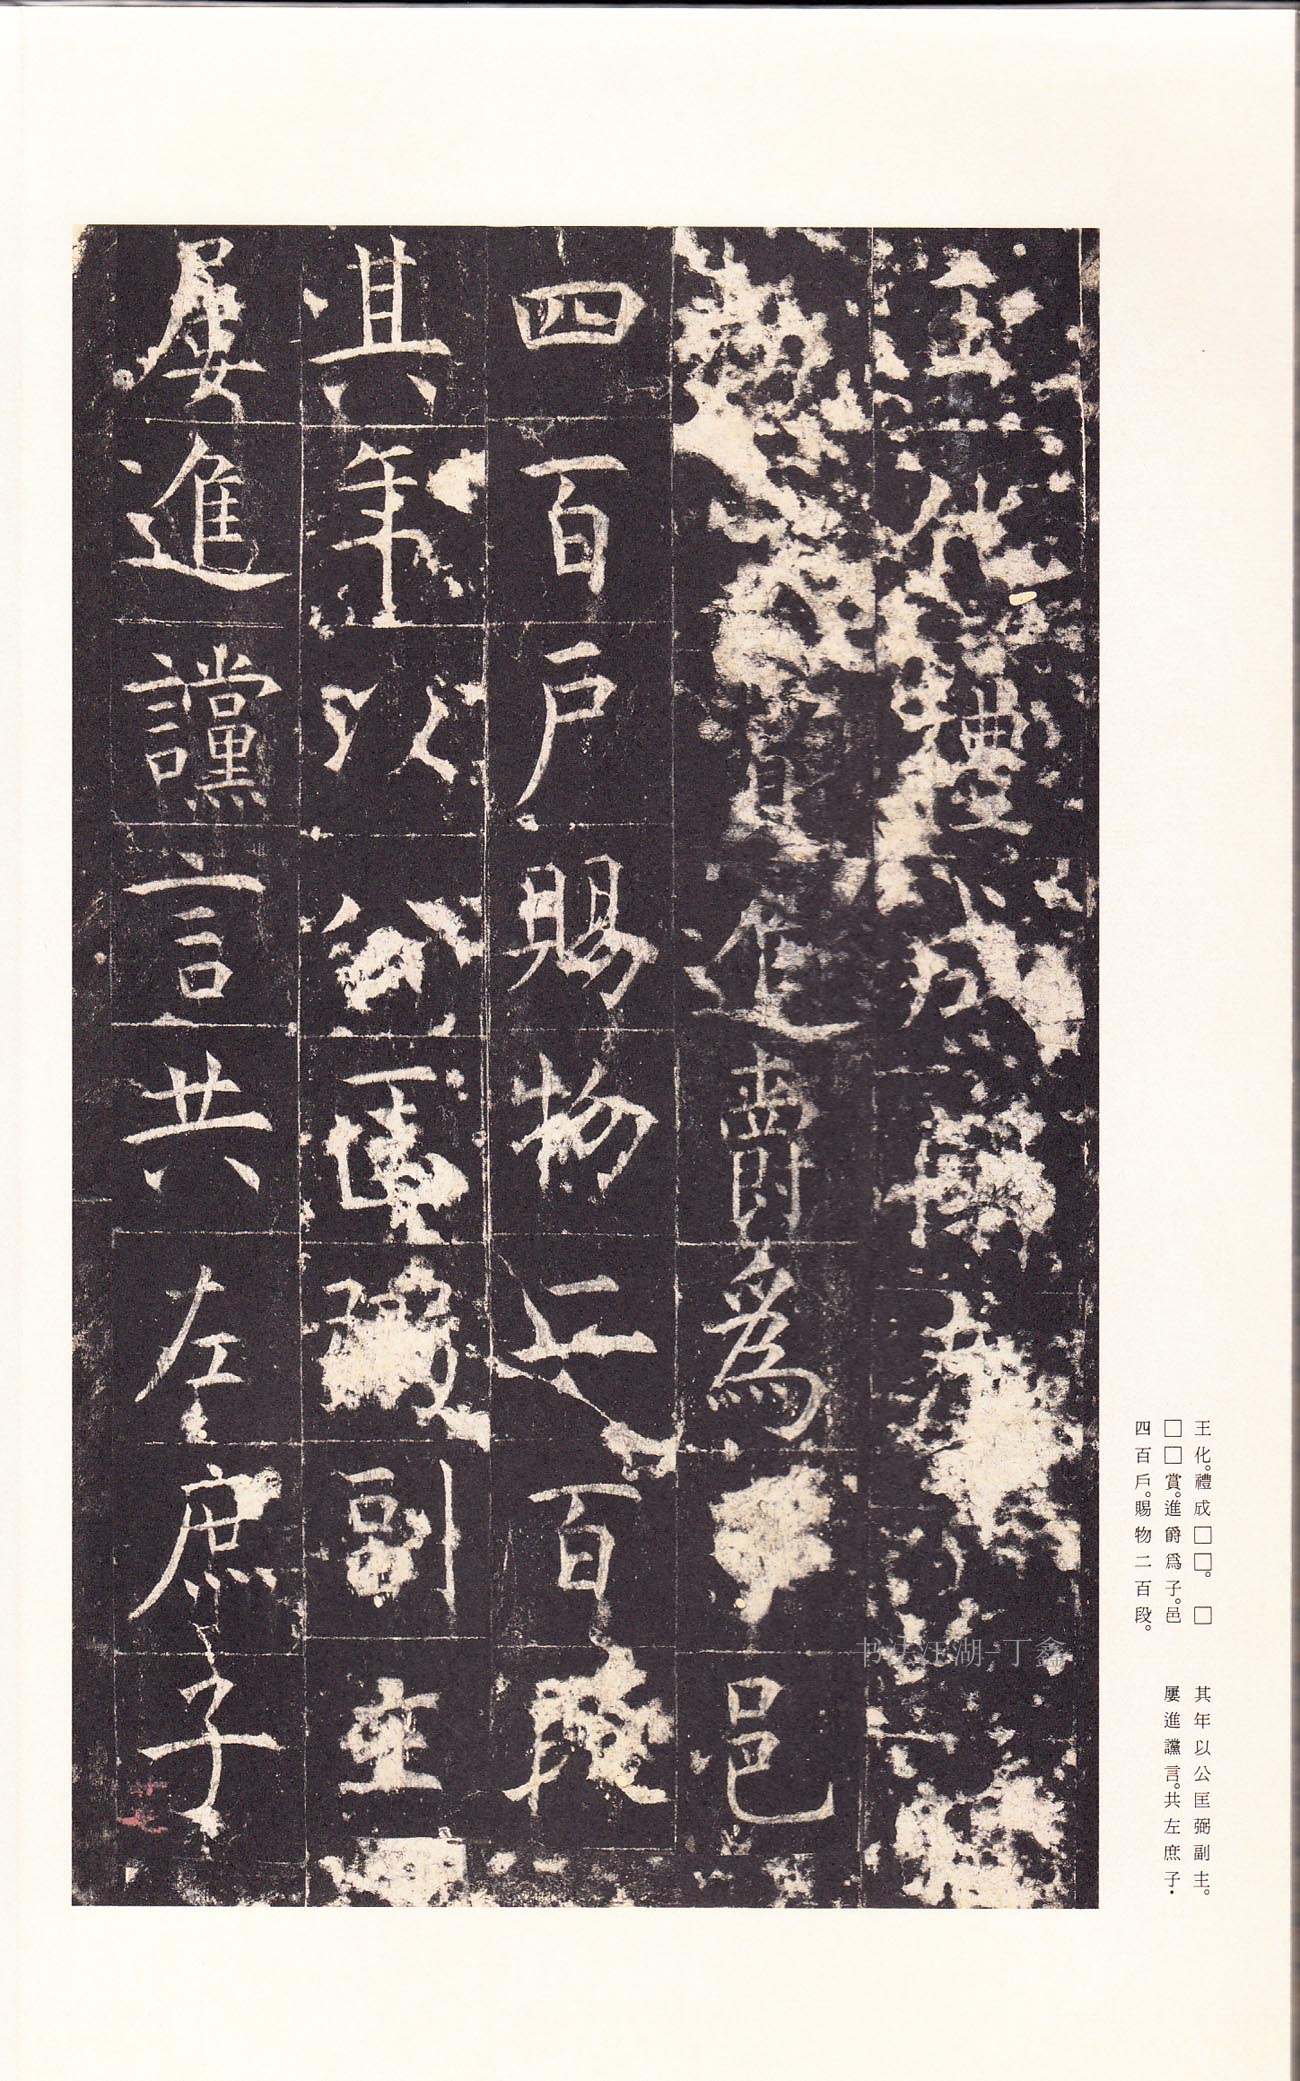 王化禮成
賞進爵爲子邑
四百戶賜物二百段
其年以公匡弼副主
屢進讜言共左庶子
王化。禮成□□。□
□□賞。進爵爲子。邑
四百戶。賜物二百段。
其年以公匡弼副主。
屢進讜言。共左庶子·
书法江湖-丁鑫